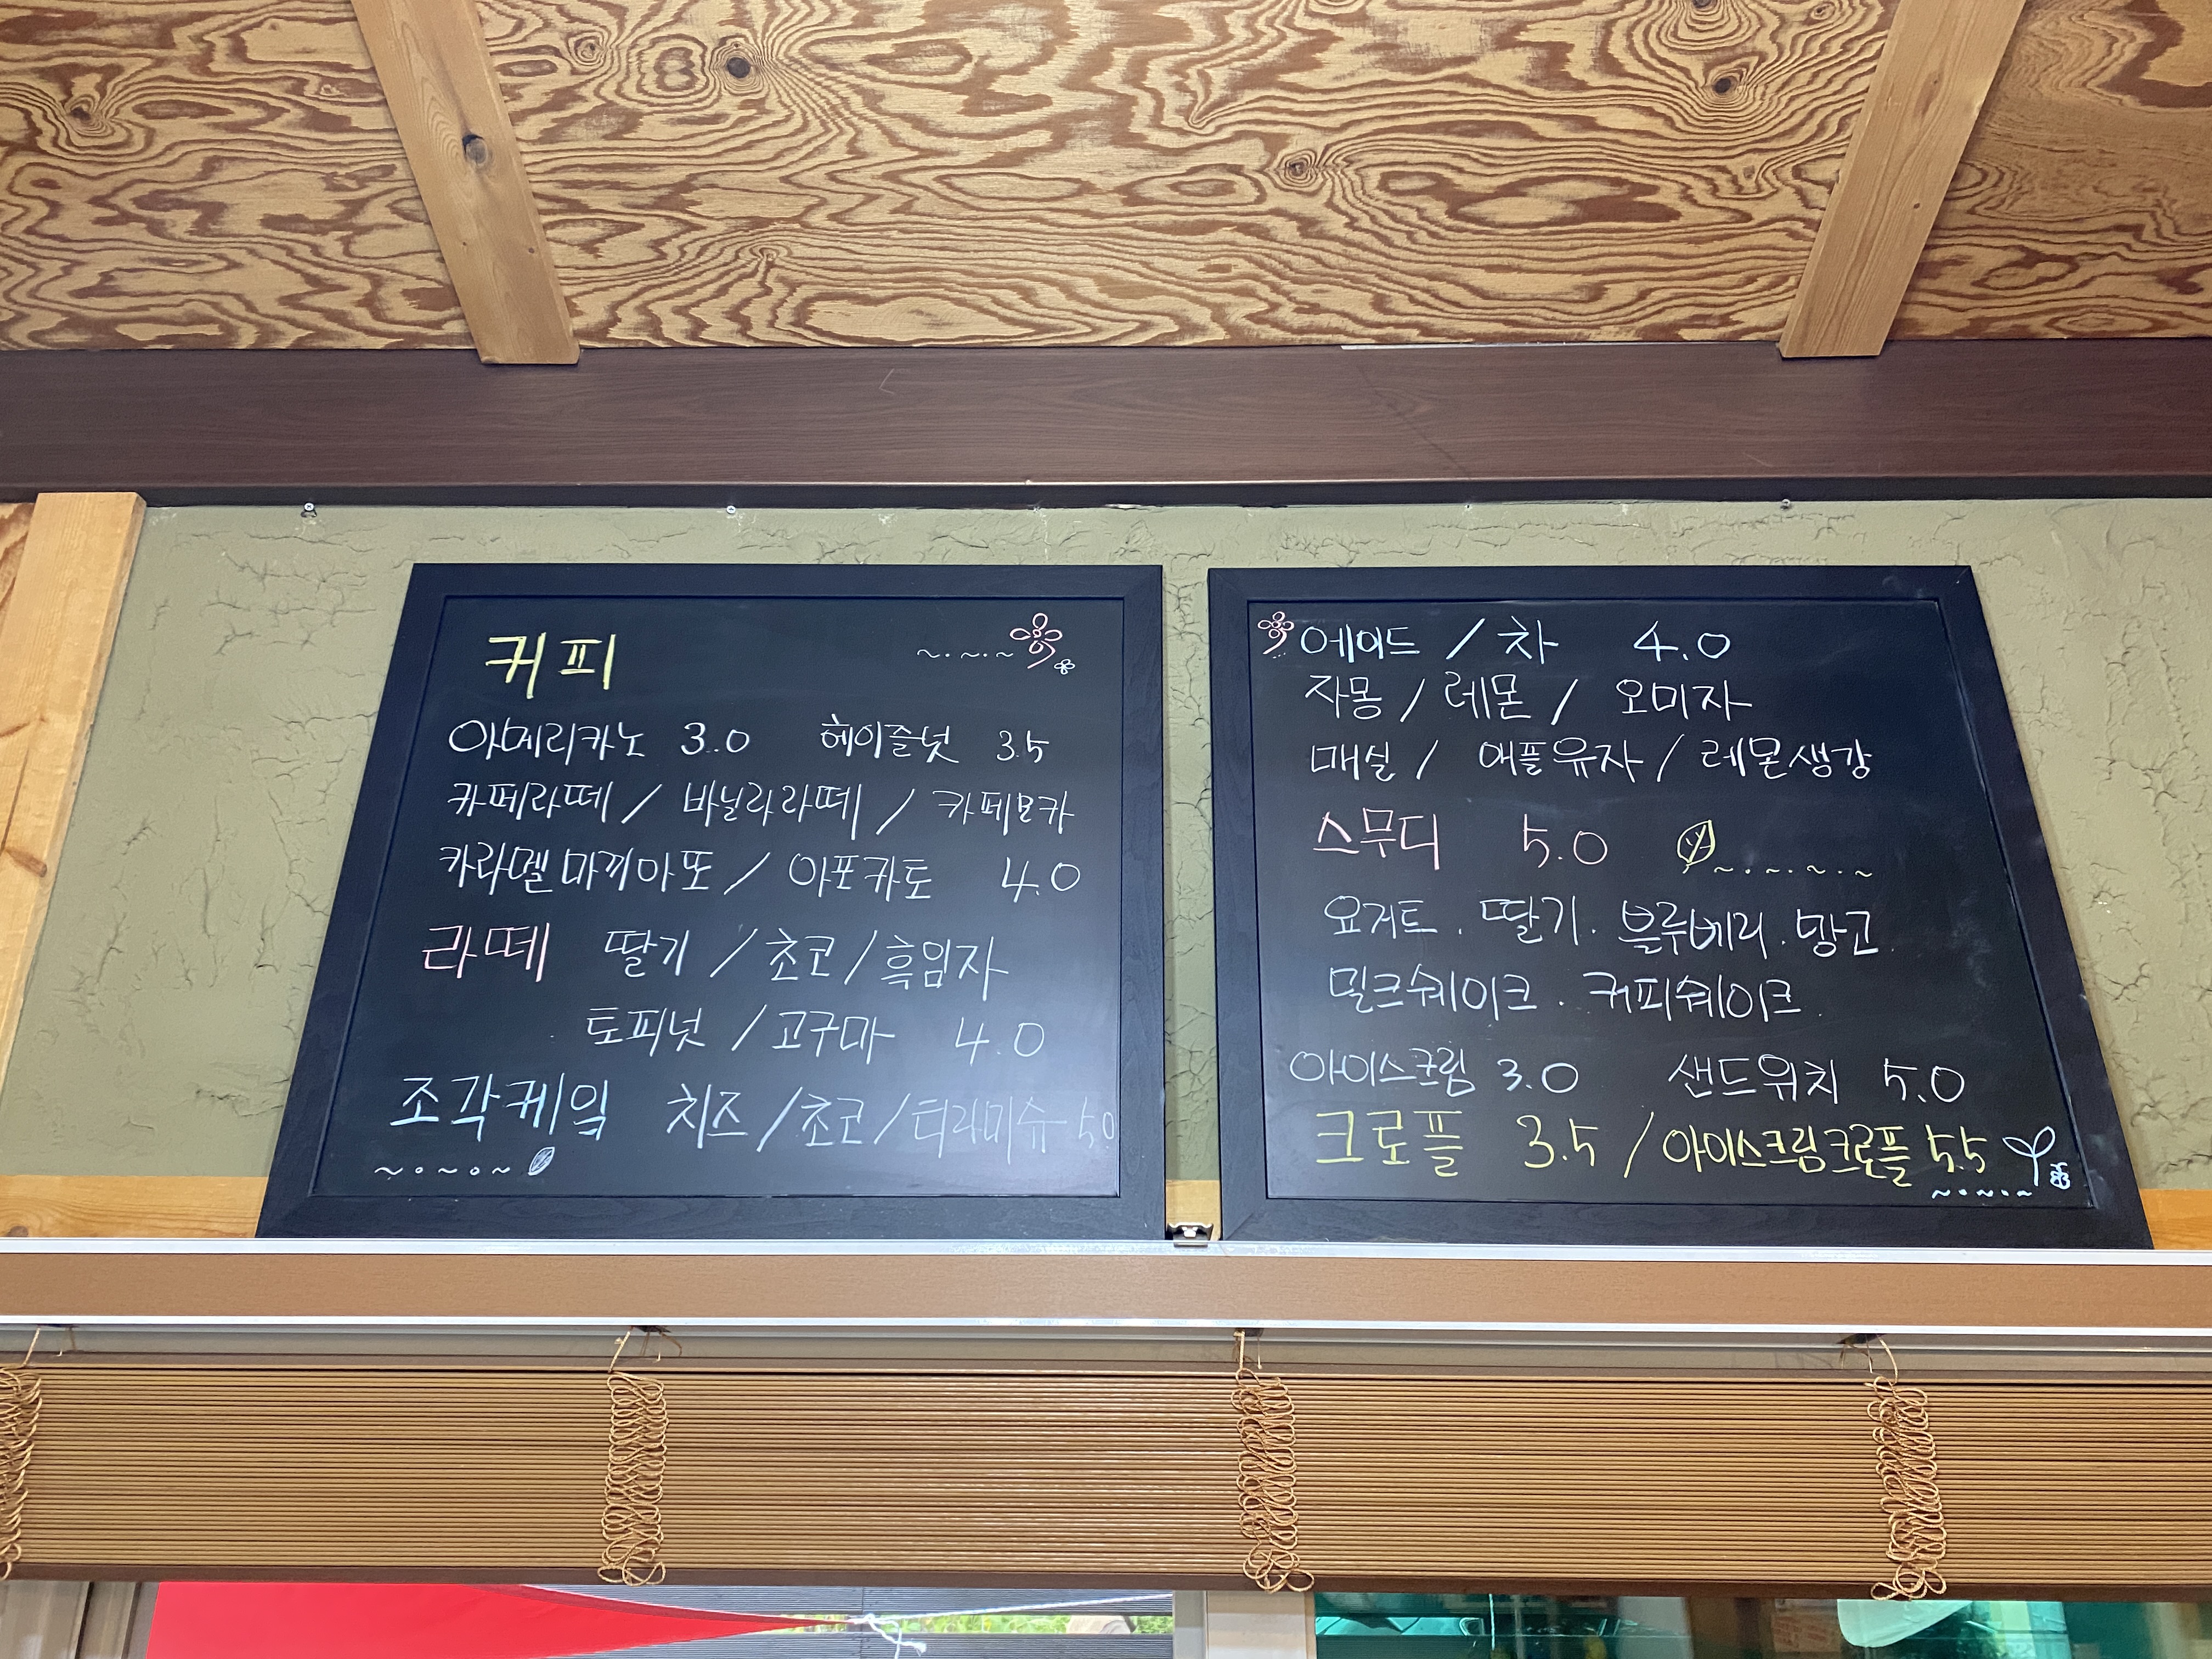 커피
아메리카노 3.0 헤이즐넛 3.5
카페라떼 / 바닐라라떼 / 카페모카
카라멜마끼아또 / 아포카토 4.0
라떼 딸기 / 초코 / 흑임자
토피넛 / 고구마 4.0
조각케잌 치즈 / 초코 / 티라미슈 5.0
에이드 / 차 4.0
자몽 / 레몬 / 오미자
매실 / 애플유자 / 레몬생강
스무디 5.0
요거트 . 딸기 . 블루베리 . 망고
밀크쉐이크 . 커피쉐이크
아이스크림 3.0 샌드위치 5.0
크로플 3.5 / 아이스크림크로플 5.5